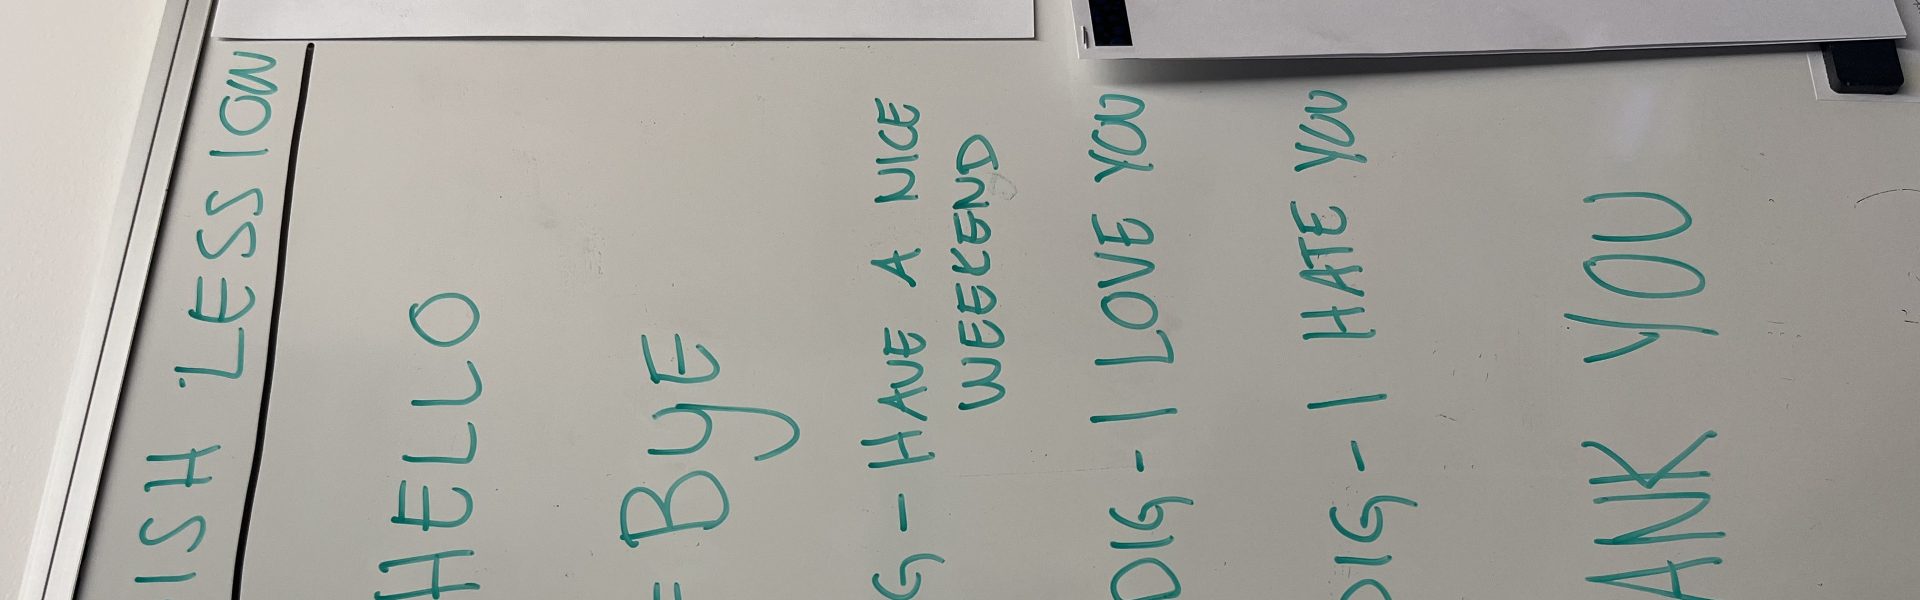 ISH LESSION
HELLO
= BYE
G - HAVE A NICE
WEEKEND
DIG - I LOVE YOU
DIG - I HATE YOU
ANK YOU